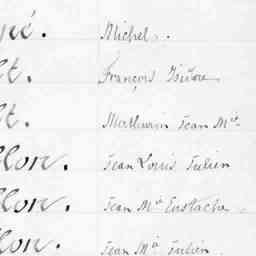 pé. Michel.
lt. François Isidore
lt. Mathurin Jean Mie.
llon. Jean Louis Julien
llon. Jean Mie Eustache.
lon. Jean Mie Julien